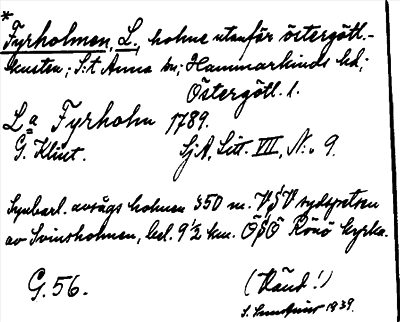 *
Fyrholmen, L., holme utanför östergötl.-
kusten; S:t Anna sn; Hammarkinds hd;
Östergötl. l.
La Fyrholm 1789.
G. Klint. SjA, Litt. III, N:o 9.
Synbarl. avsågs holmen 350 m. VSV sydspetsen
av Svinsholmen, bel. 9 1/2 km. ÖSÖ Rönö kyrka.
G. 56. (Känd!)
S. 1939.